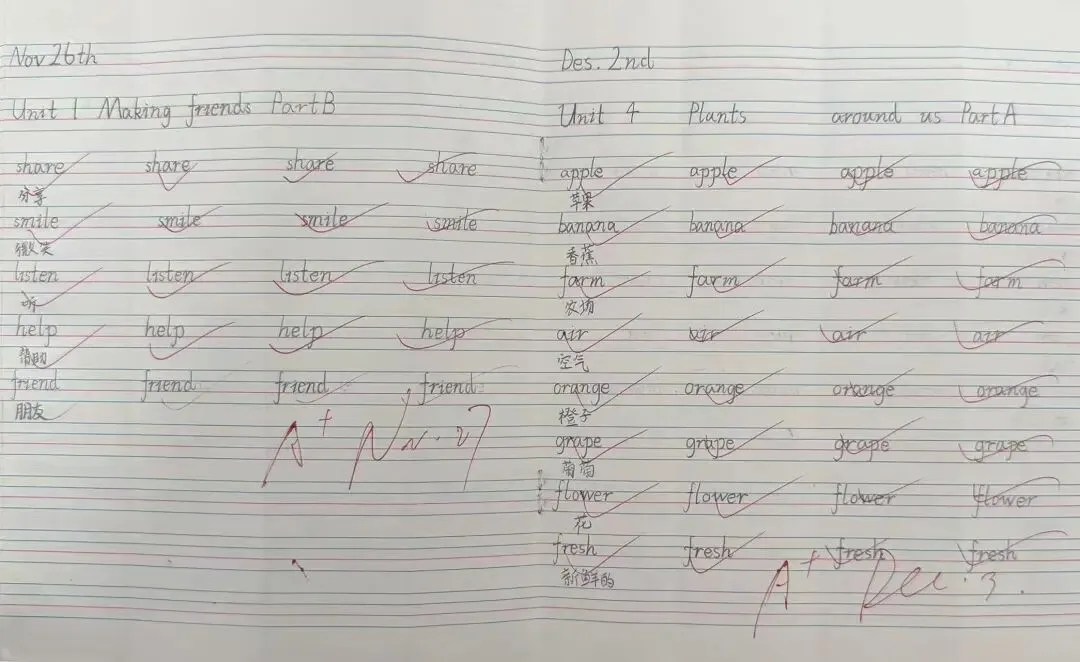 Nov 26th
Unit 1 Making friends Part B
share share share share
分享
smile smile smile smile
微笑
listen listen listen listen
听
help help help help
帮助
friend friend friend friend
朋友
A+ Nov. 27
Des. 2nd
Unit 4 Plants around us Part A
apple apple apple apple
苹果
banana banana banana banana
香蕉
farm farm farm farm
农场
air air air air
空气
orange orange orange orange
橙子
grape grape grape grape
葡萄
flower flower flower flower
花
fresh fresh fresh fresh
新鲜的
A+ Dec. 3.